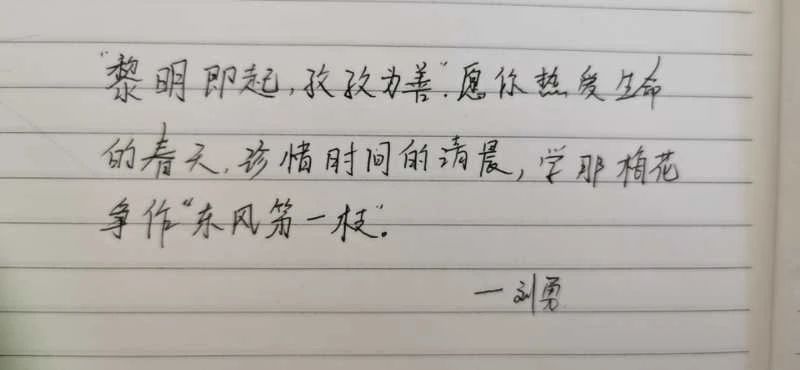 "黎明即起,孜孜为善".愿你热爱生命
的春天,珍惜时间的清晨,学那梅花
争作"东风第一枝".
一刘勇